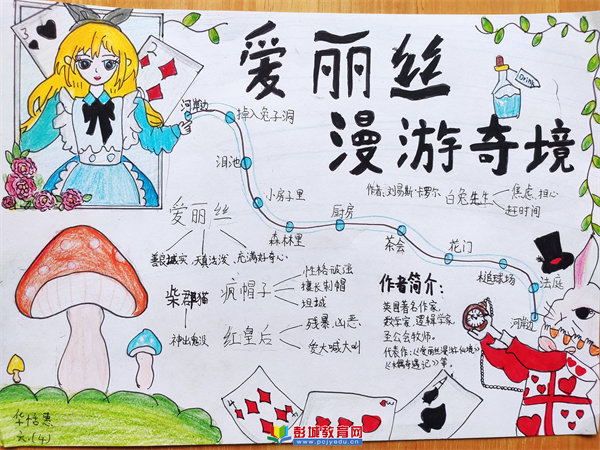 爱丽丝
漫游奇境
Drink
作者:刘易斯·卡罗尔
河岸边
掉入兔子洞
泪池
小房子里
森林里
厨房
茶会
花门
槌球场
法庭
河岸边
白兔先生
焦虑、担心
赶时间
爱丽丝
善良诚实、天真活泼、充满好奇心
柴郡猫
神出鬼没
疯帽子
擅长制帽
坦诚
红皇后
残暴、凶恶
发大喊大叫
作者简介:
英国著名作家,
数学家,逻辑学家,
圣公会牧师。
代表作:《爱丽丝漫游仙境》
3
4
六、(4)
彭城教育网
www.pcjyedu.cn